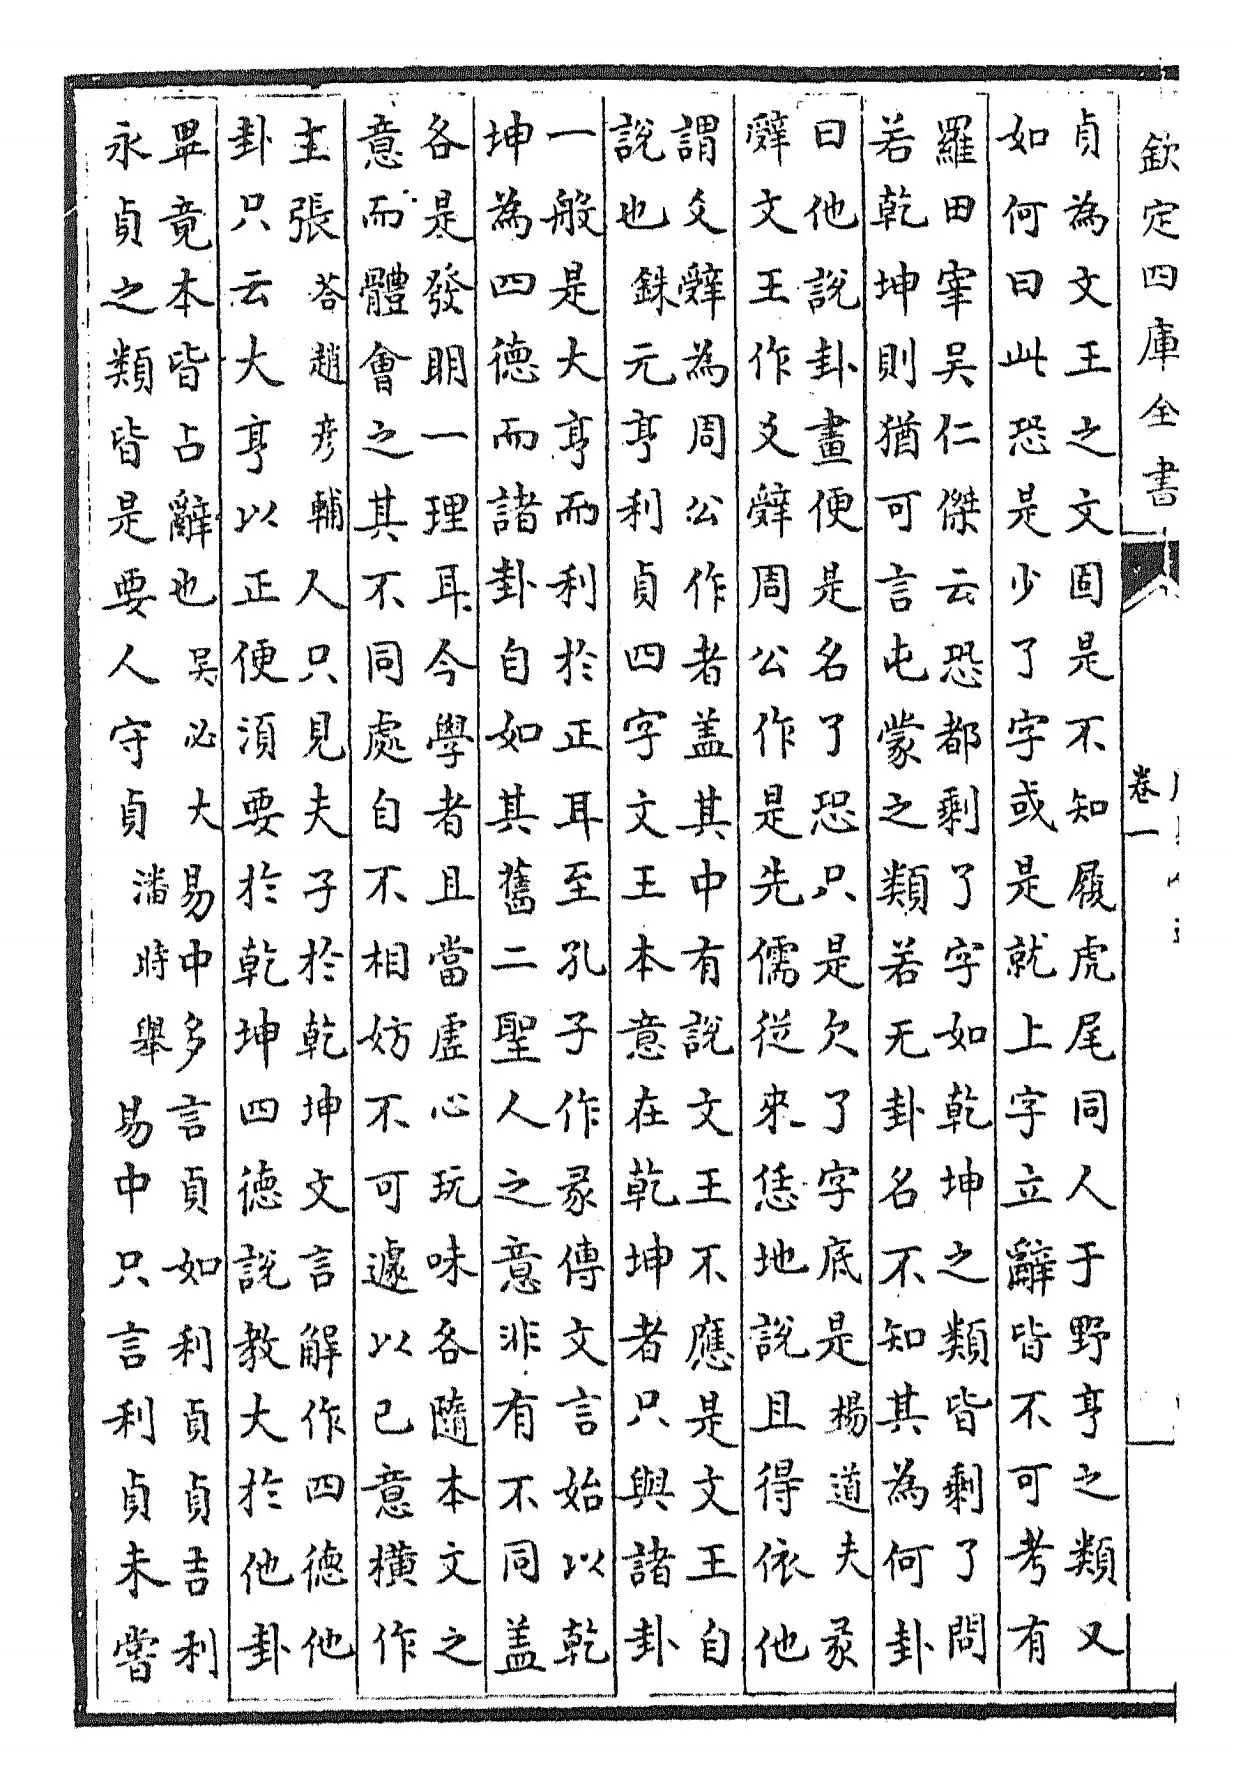 欽定四庫全書
卷一
貞為文王之文固是不知履虎尾同人于野亨之類又
如何曰此恐是少了字或是就上字立辭皆不可考有
羅田宰吳仁傑云恐都剩了字如乾坤之類皆剩了問
若乾坤則猶可言屯蒙之類若无卦名不知其為何卦
曰他說卦畫便是名了恐只是欠了字底是楊道夫彖
辭文王作爻辭周公作是先儒從來恁地說且得依他
謂爻辭為周公作者盖其中有說文王不應是文王自
說也銖元亨利貞四字文王本意在乾坤者只與諸卦
一般是大亨而利於正耳至孔子作彖傳文言始以乾
坤為四德而諸卦自如其舊二聖人之意非有不同盖
各是發明一理耳今學者且當虛心玩味各隨本文之
意而體會之其不同處自不相妨不可遽以已意橫作
主張荅趙彦輔人只見夫子於乾坤文言解作四德他
卦只云大亨以正便須要於乾坤四德說教大於他卦
畢竟本皆占辭也吳必大易中多言貞如利貞貞吉利
永貞之類皆是要人守貞潘時舉易中只言利貞未嘗